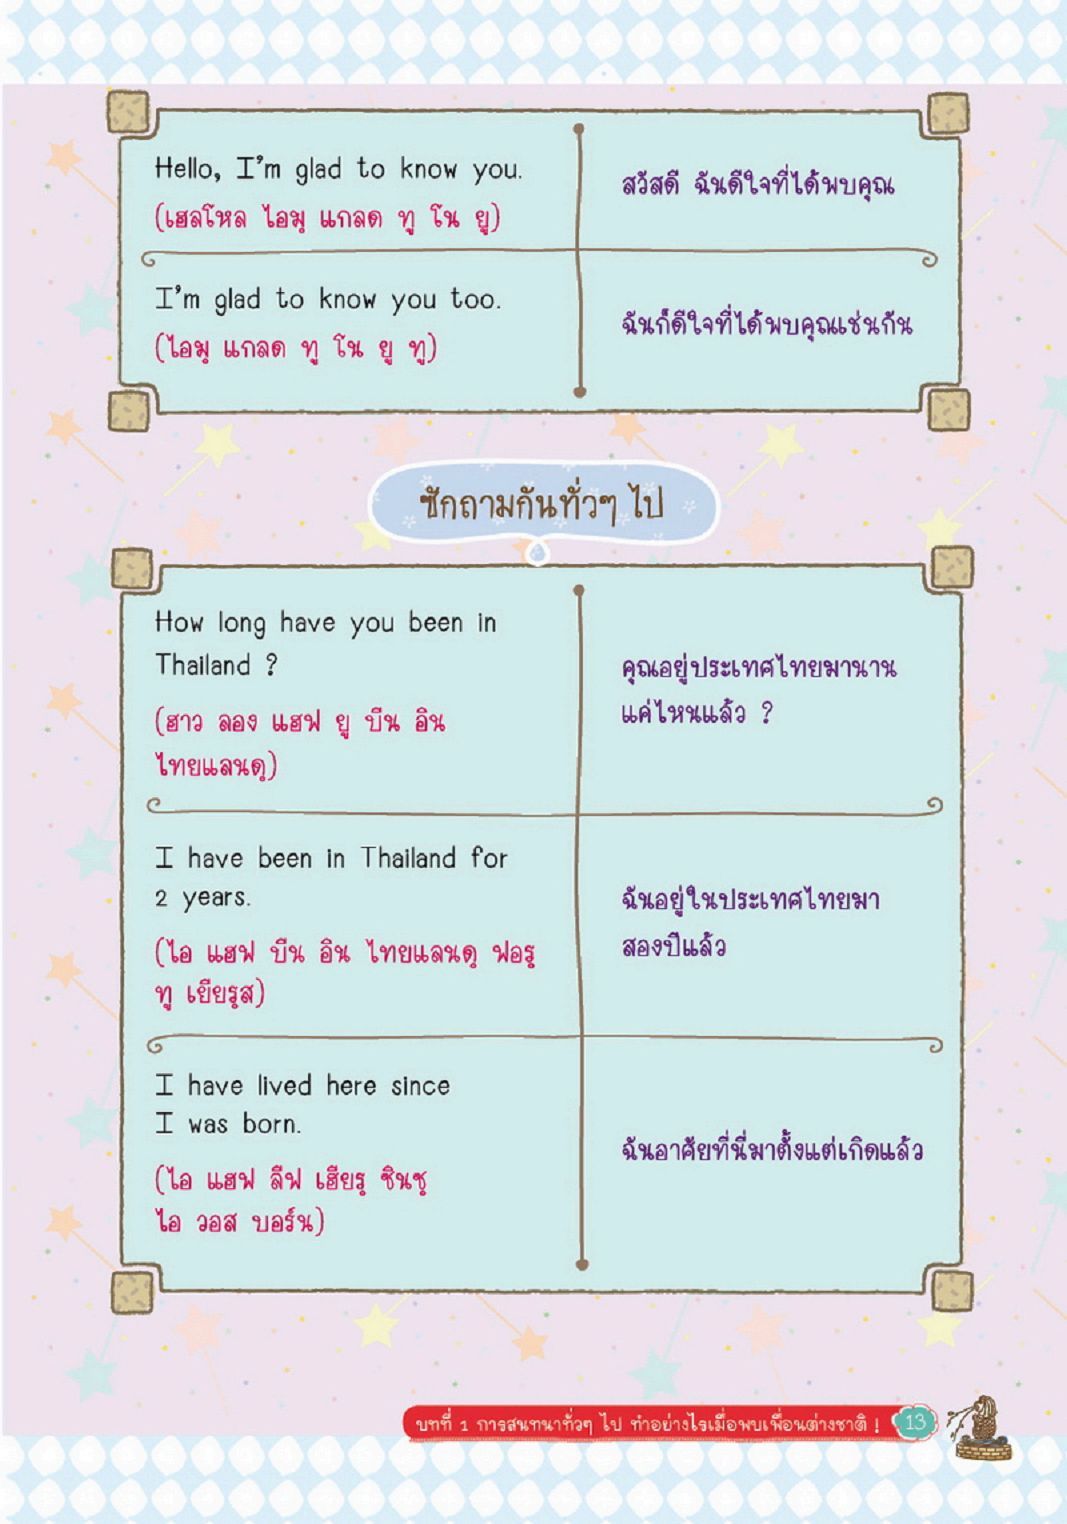 Hello, I'm glad to know you.
(เฮลโหล ไอมฺ แกลด ทู โน ยู)
สวัสดี ฉันดีใจที่ได้พบคุณ
I'm glad to know you too.
(ไอมฺ แกลด ทู โน ยู ทู)
ฉันก็ดีใจที่ได้พบคุณเช่นกัน
ซักถามกันทั่วๆ ไป
How long have you been in
Thailand ?
(ฮาว ลอง แฮฟ ยู บีน อิน
ไทยแลนดฺ)
คุณอยู่ประเทศไทยมานาน
แค่ไหนแล้ว ?
I have been in Thailand for
2 years.
(ไอ แฮฟ บีน อิน ไทยแลนดฺ ฟอรฺ
ทู เยียรฺส)
ฉันอยู่ในประเทศไทยมา
สองปีแล้ว
I have lived here since
I was born.
(ไอ แฮฟ ลีฟ เฮียรฺ ซินซฺ
ไอ วอส บอร์น)
ฉันอาศัยที่นี่มาตั้งแต่เกิดแล้ว
บทที่ 1 การสนทนาทั่วๆ ไป ทำอย่างไรเมื่อพบเพื่อนต่างชาติ ! 13